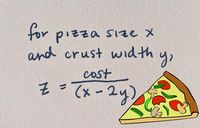 for pizza size x
and crust width y,
z = cost
(x - 2y)